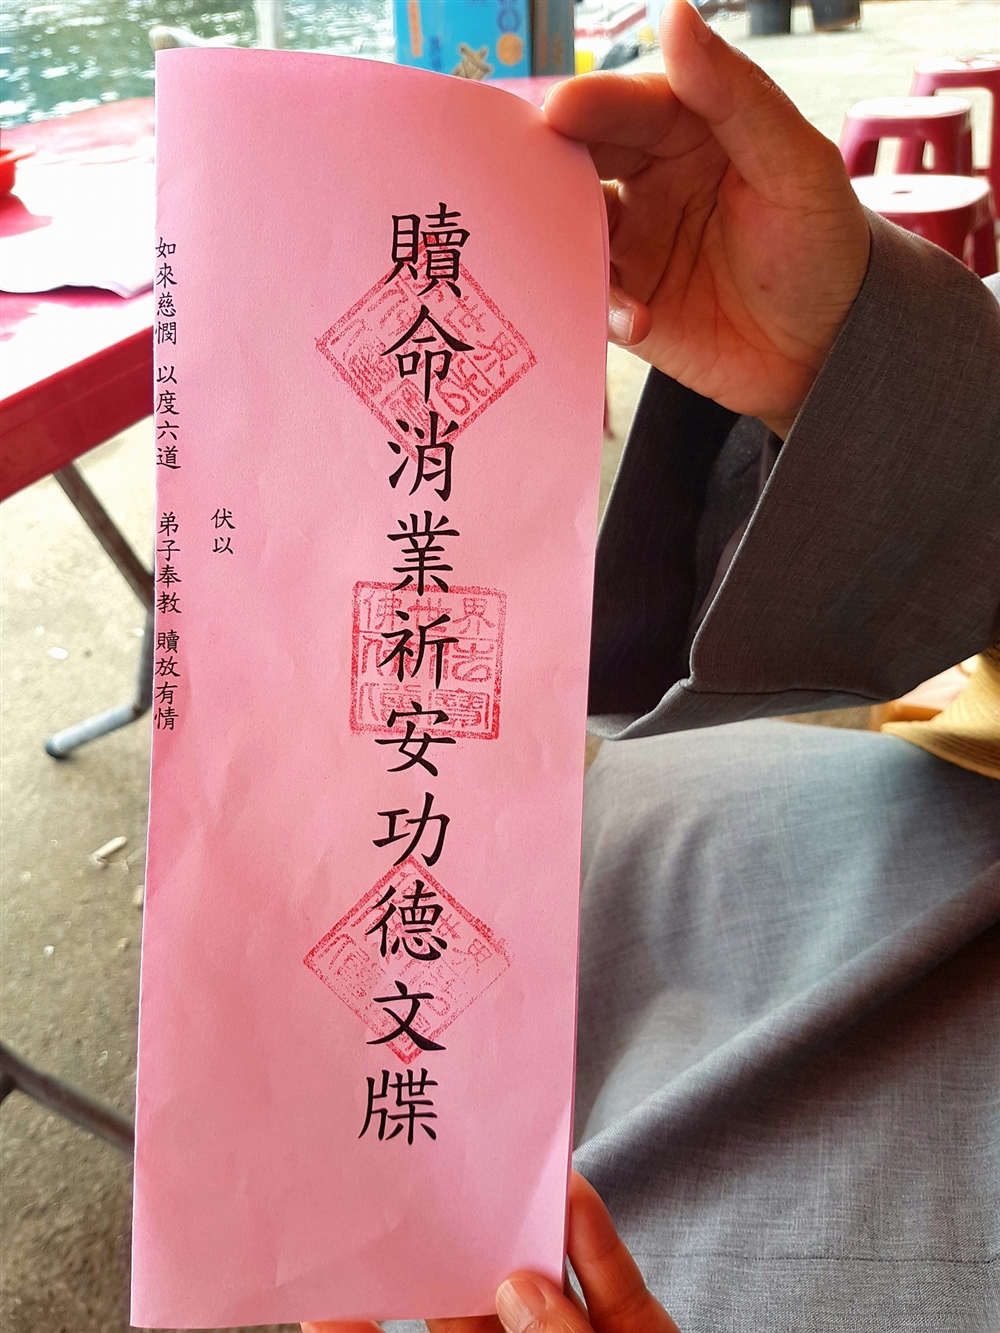 贖命消業祈安功德文牒
伏以
如來慈憫 以度六道 弟子奉教 贖放有情